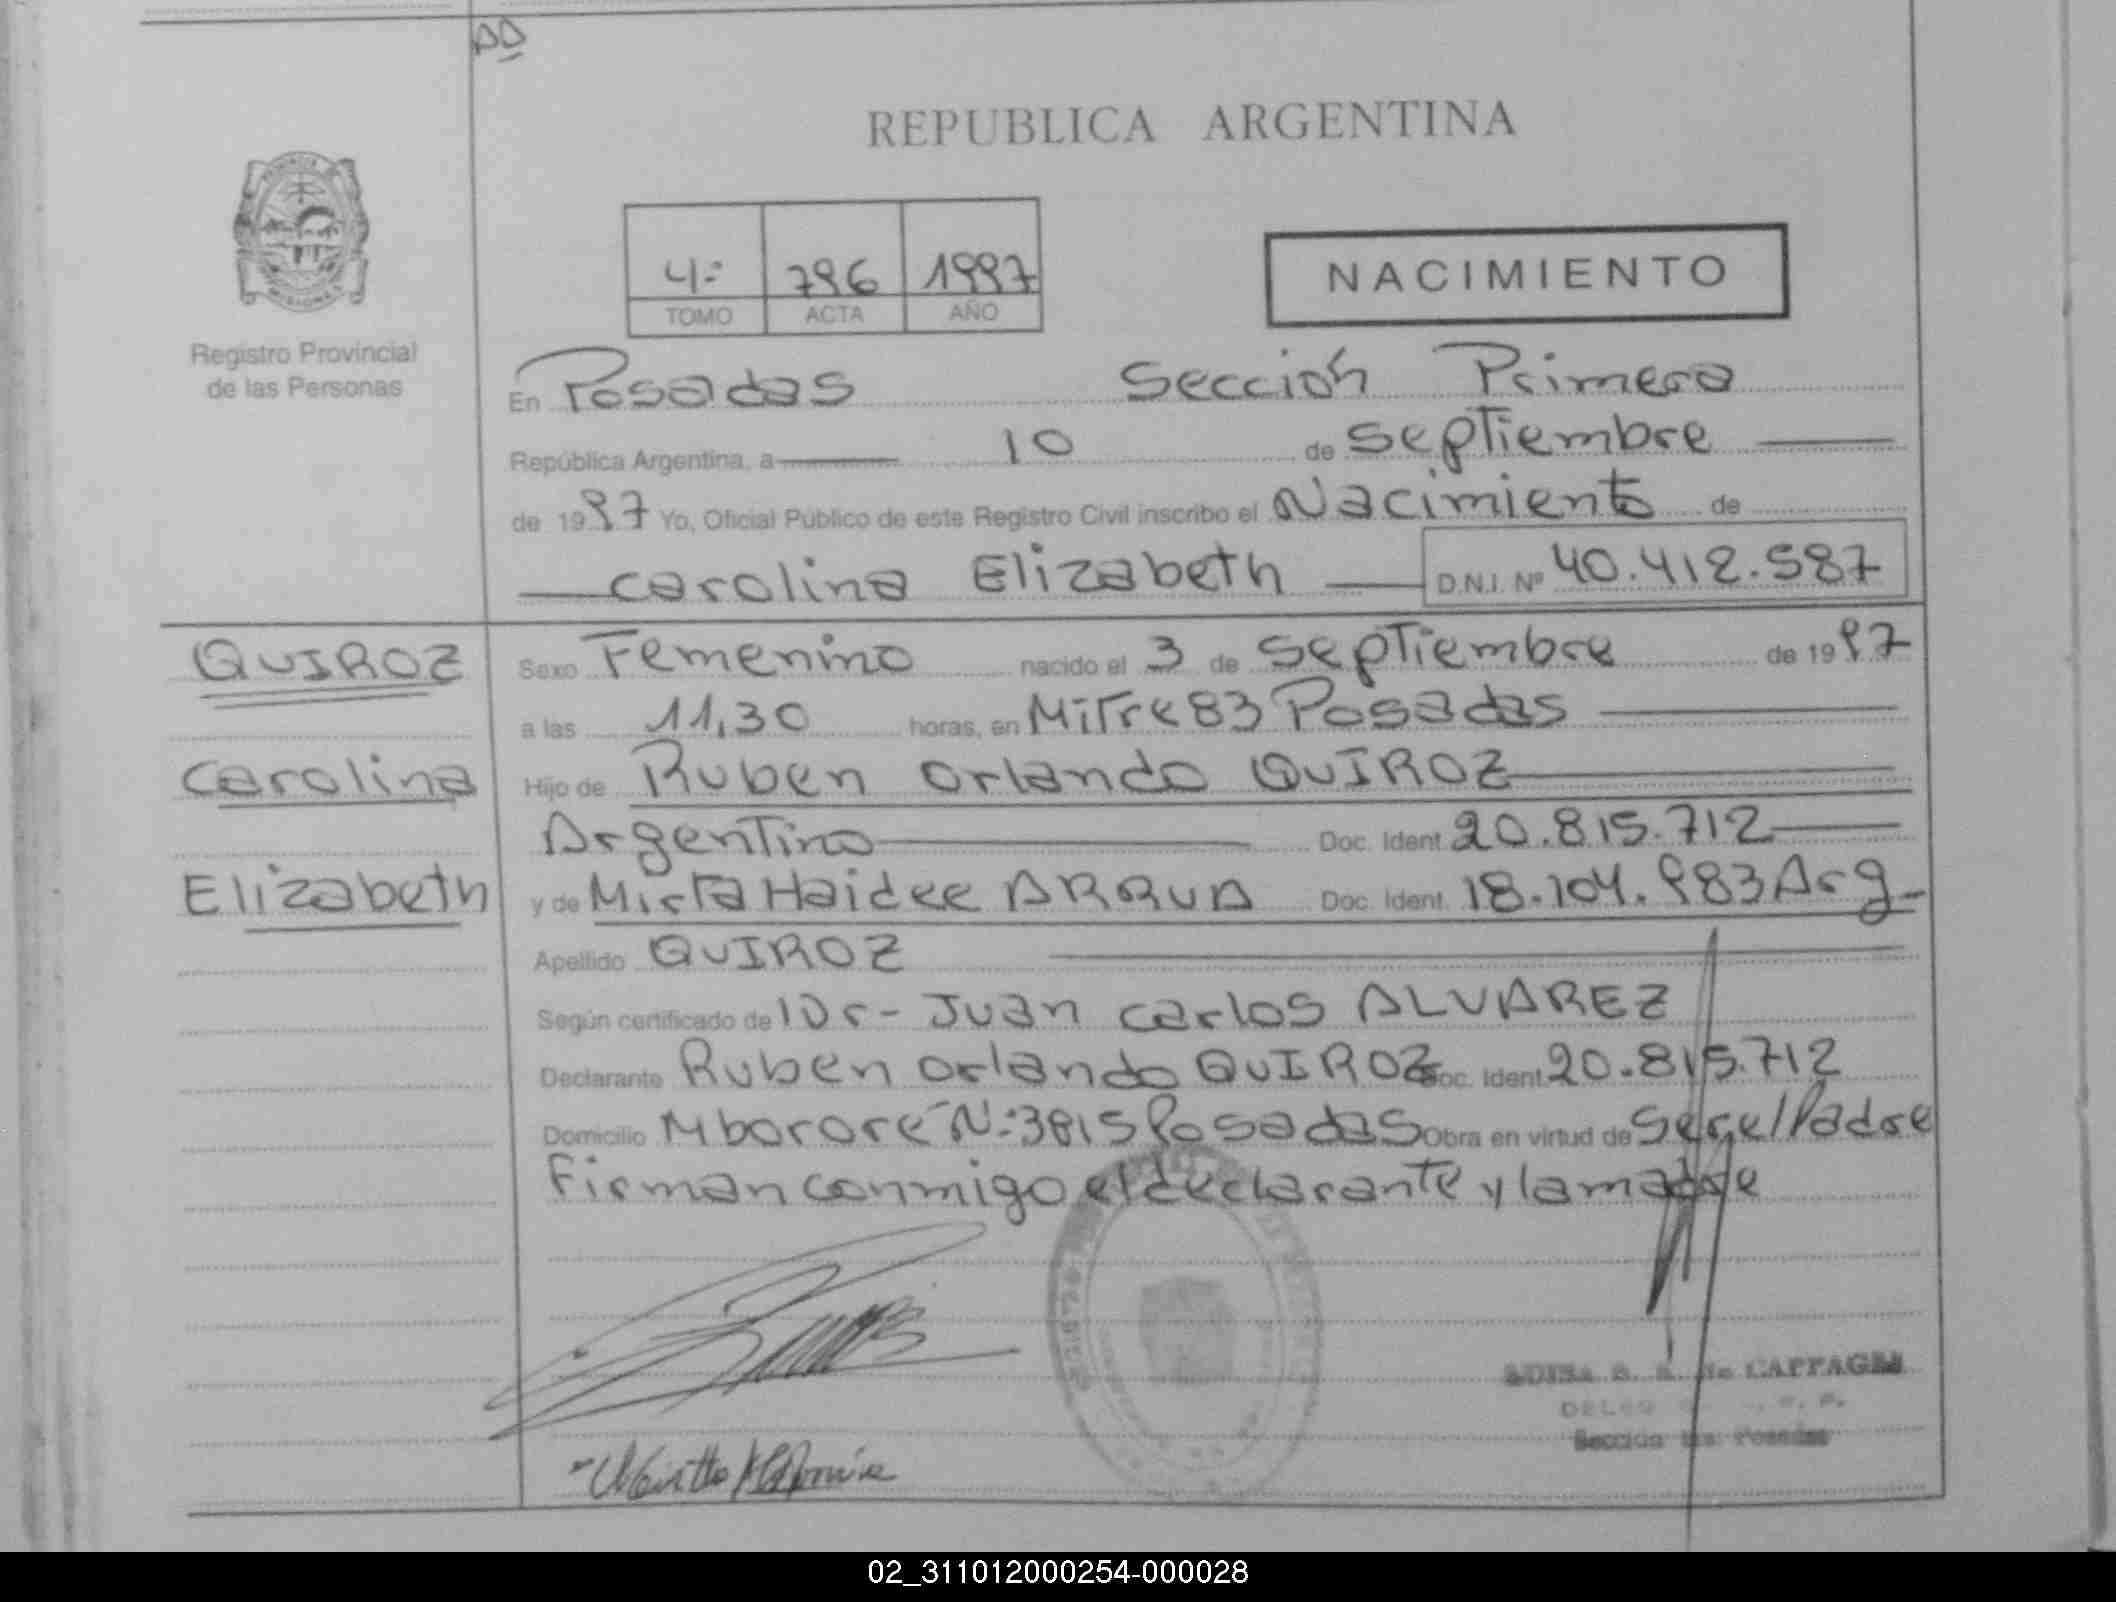 REPUBLICA ARGENTINA
PROVINCIA
MISIONES
Registro Provincial
de las Personas
4º 796 1997
TOMO ACTA AÑO
NACIMIENTO
En Posadas Sección Primera
República Argentina, a 10 de septiembre
de 1997 Yo, Oficial Público de este Registro Civil inscribo el Nacimiento de
Carolina Elizabeth D.N.I. Nº 40.412.587
QUIROZ
Carolina
Elizabeth
Sexo Femenino nacido el 3 de septiembre de 1997
a las 11,30 horas, en Mitre 83 Posadas
Hijo de Ruben Orlando QUIROZ
Argentino Doc. Ident. 20.815.712
y de Mirta Haidee ARRUA Doc. Ident. 18.104.983 Arg
Apellido QUIROZ
Según certificado de Dr- Juan Carlos ALVAREZ
Declarante Ruben Orlando QUIROZ Doc. Ident. 20.815.712
Domicilio Mbororé Nº 3815 Posadas Obra en virtud de ser el Padre
Firman conmigo el declarante y la madre
de CAPPAGLI
Sección 1ra Posadas
02_311012000254-000028